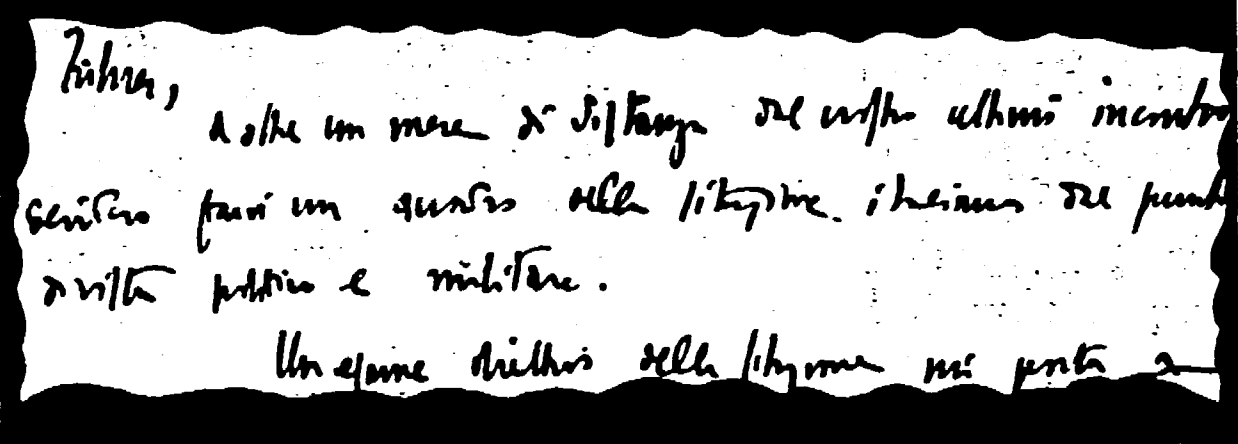 Führer,
a oltre un mese di distanza dal nostro ultimo incontro
desidero farvi un quadro della situazione italiana dal punto
di vista politico e militare.
Un esame obiettivo della situazione mi porta a